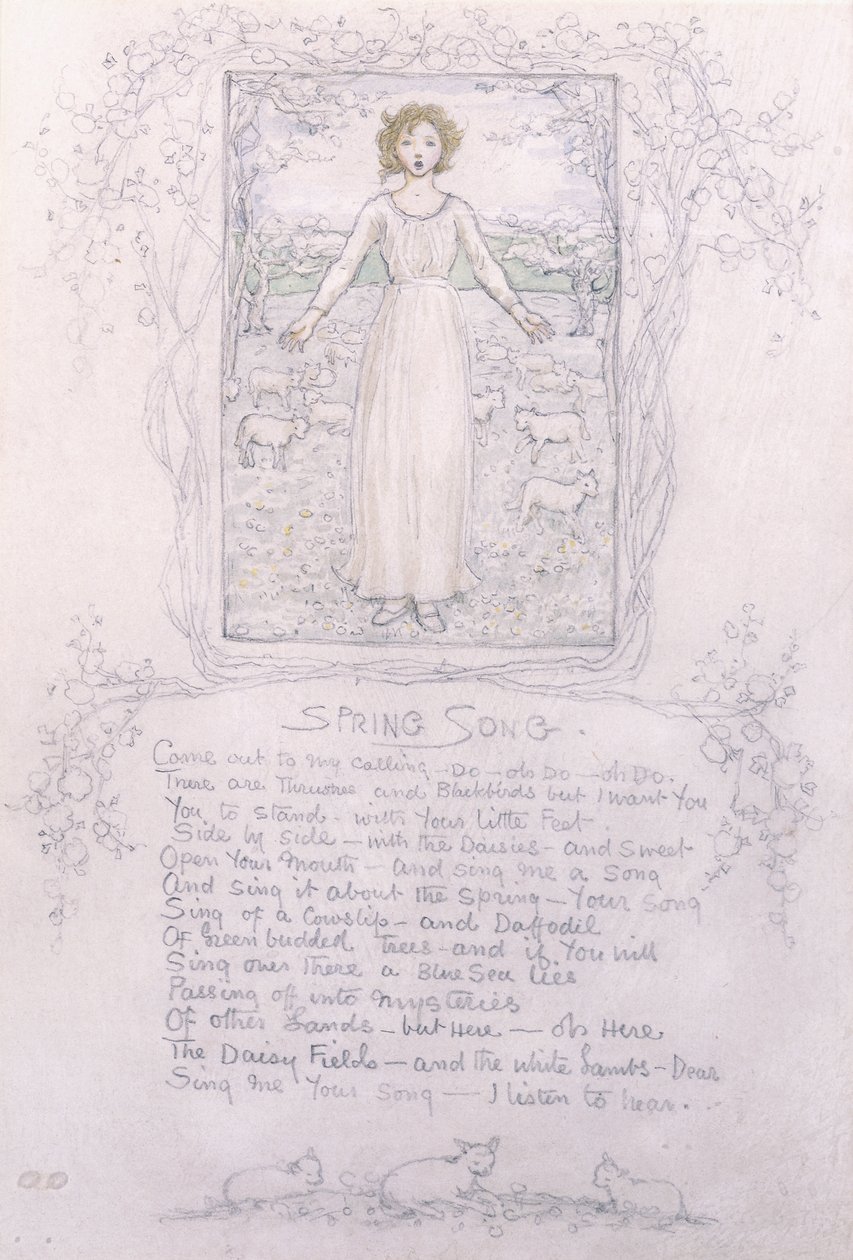 SPRING SONG.
Come out to my calling - Do - oh Do - oh Do.
There are Thrushes and Blackbirds but I want You
You to stand - with Your little Feet.
Side by side - with the Daisies - and sweet
Open Your Mouth - and sing me a Song
And sing it about the Spring - Your Song
Sing of a Cowslip - and Daffodil
Of Green budded Trees - and if You will
Sing over There a Blue Sea lies
Passing off into mysteries
Of other Lands - but Here - oh Here
The Daisy Fields - and the white Lambs - Dear
Sing Me Your Song - I listen to hear.